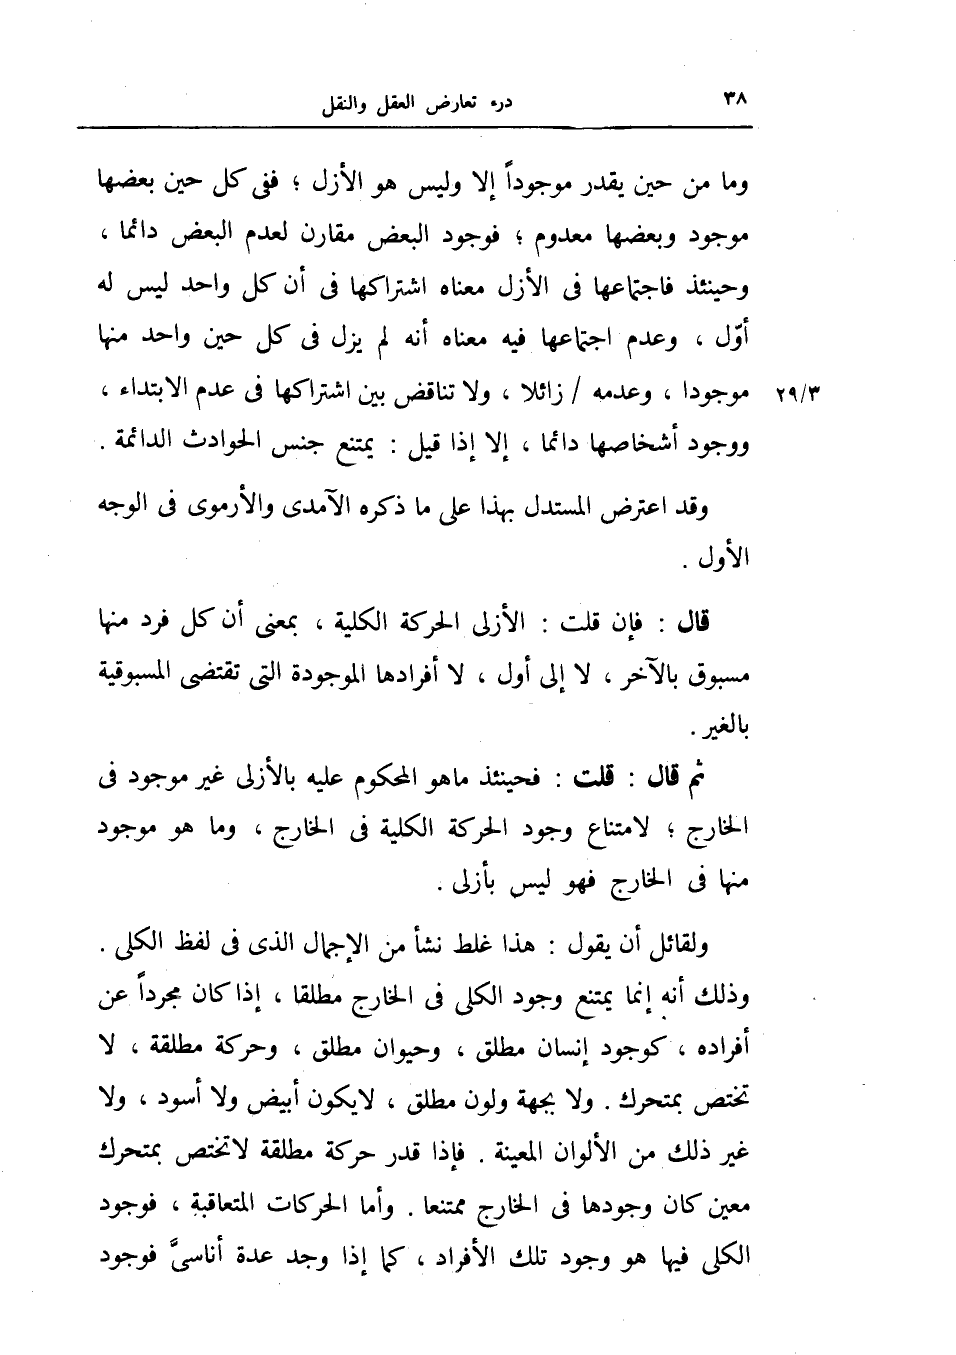 ٣٨
درء تعارض العقل والنقل
وما من حين يقدر موجوداً إلا وليس هو الأزل ؛ ففى كل حين بعضها
موجود وبعضها معدوم ؛ فوجود البعض مقارن لعدم البعض دائما ،
وحينئذ فاجتماعها فى الأزل معناه اشتراكها فى أن كل واحد ليس له
أوّل ، وعدم اجتماعها فيه معناه أنه لم يزل فى كل حين واحد منها
٢٩/٣ موجودا ، وعدمه / زائلا ، ولا تناقض بين اشتراكها فى عدم الابتداء ،
ووجود أشخاصها دائما ، إلا إذا قيل : يمتنع جنس الحوادث الدائمة .
وقد اعترض المستدل بهذا على ما ذكره الآمدى والأرموى فى الوجه
الأول .
قال : فإن قلت : الأزلى الحركة الكلية ، بمعنى أن كل فرد منها
مسبوق بالآخر ، لا إلى أول ، لا أفرادها الموجودة التى تقتضى المسبوقية
بالغير .
ثم قال : قلت : فحينئذ ماهو المحكوم عليه بالأزلى غير موجود فى
الخارج ؛ لامتناع وجود الحركة الكلية فى الخارج ، وما هو موجود
منها فى الخارج فهو ليس بأزلى .
ولقائل أن يقول : هذا غلط نشأ من الإجمال الذى فى لفظ الكلى .
وذلك أنه إنما يمتنع وجود الكلى فى الخارج مطلقا ، إذا كان مجرداً عن
أفراده ، كوجود إنسان مطلق ، وحيوان مطلق ، وحركة مطلقة ، لا
تختص بمتحرك . ولا بجهة ولون مطلق ، لايكون أبيض ولا أسود ، ولا
غير ذلك من الألوان المعينة . فإذا قدر حركة مطلقة لاتختص بمتحرك
معين كان وجودها فى الخارج ممتنعا . وأما الحركات المتعاقبة ، فوجود
الكلى فيها هو وجود تلك الأفراد ، كما إذا وجد عدة أناسىَّ فوجود